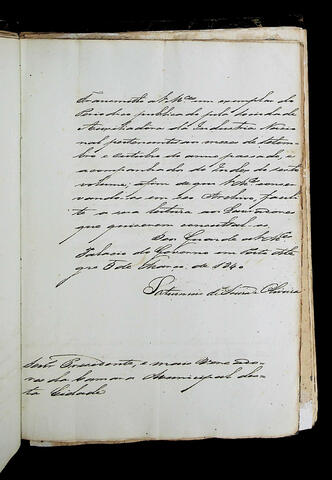 Transmitto a V. Mces um exemplar do
Periodico publicado pela Sociedade
Auxiliadora da Industria Nacio
nal pertencente aos mezes de Setem
bro e Outubro do anno passado, e
acompanhado do Index do sexto
volume, afim de que V. Mces conser
vando-os em seo Archivo, facili
te a sua leitura aos Lavradores
que quiserem consultal-os
Deos Guarde a V. Mces
Palacio do Governo em Porto Ale
gre 5 de Março de 184
Saturnino de Souza e Oliveira
Senr. Presidente, e mais Veread o
res da Camara Municipal des
ta Cidade